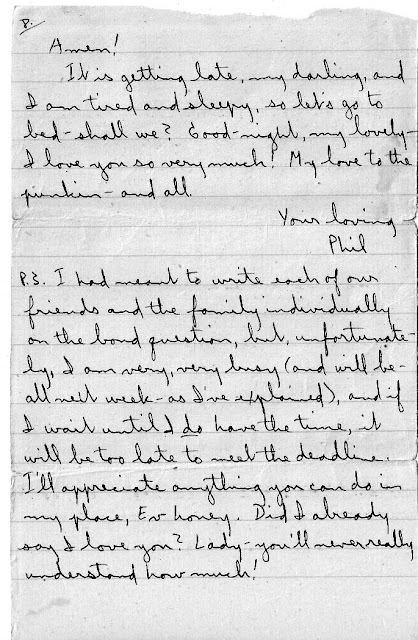 8.
Amen!
It is getting late, my darling, and
I am tired and sleepy, so let's go to
bed - shall we? Good-night, my lovely -
I love you so very much! My love to the
punkin - and all.
Your loving
Phil
P.S. I had meant to write each of our
friends and the family individually
on the bond question, but, unfortunate-
ly, I am very, very busy (and will be -
all next week - as I've explained), and if
I wait until I do have the time, it
will be too late to meet the deadline.
I'll appreciate anything you can do in
my place, Ev honey. Did I already
say I love you? Lady - you'll never really
understand how much!